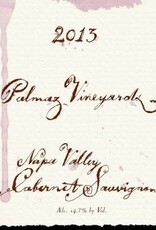 2013
Palmaz Vineyards
Napa Valley
Cabernet Sauvignon
Alc. 14.7% by Vol.